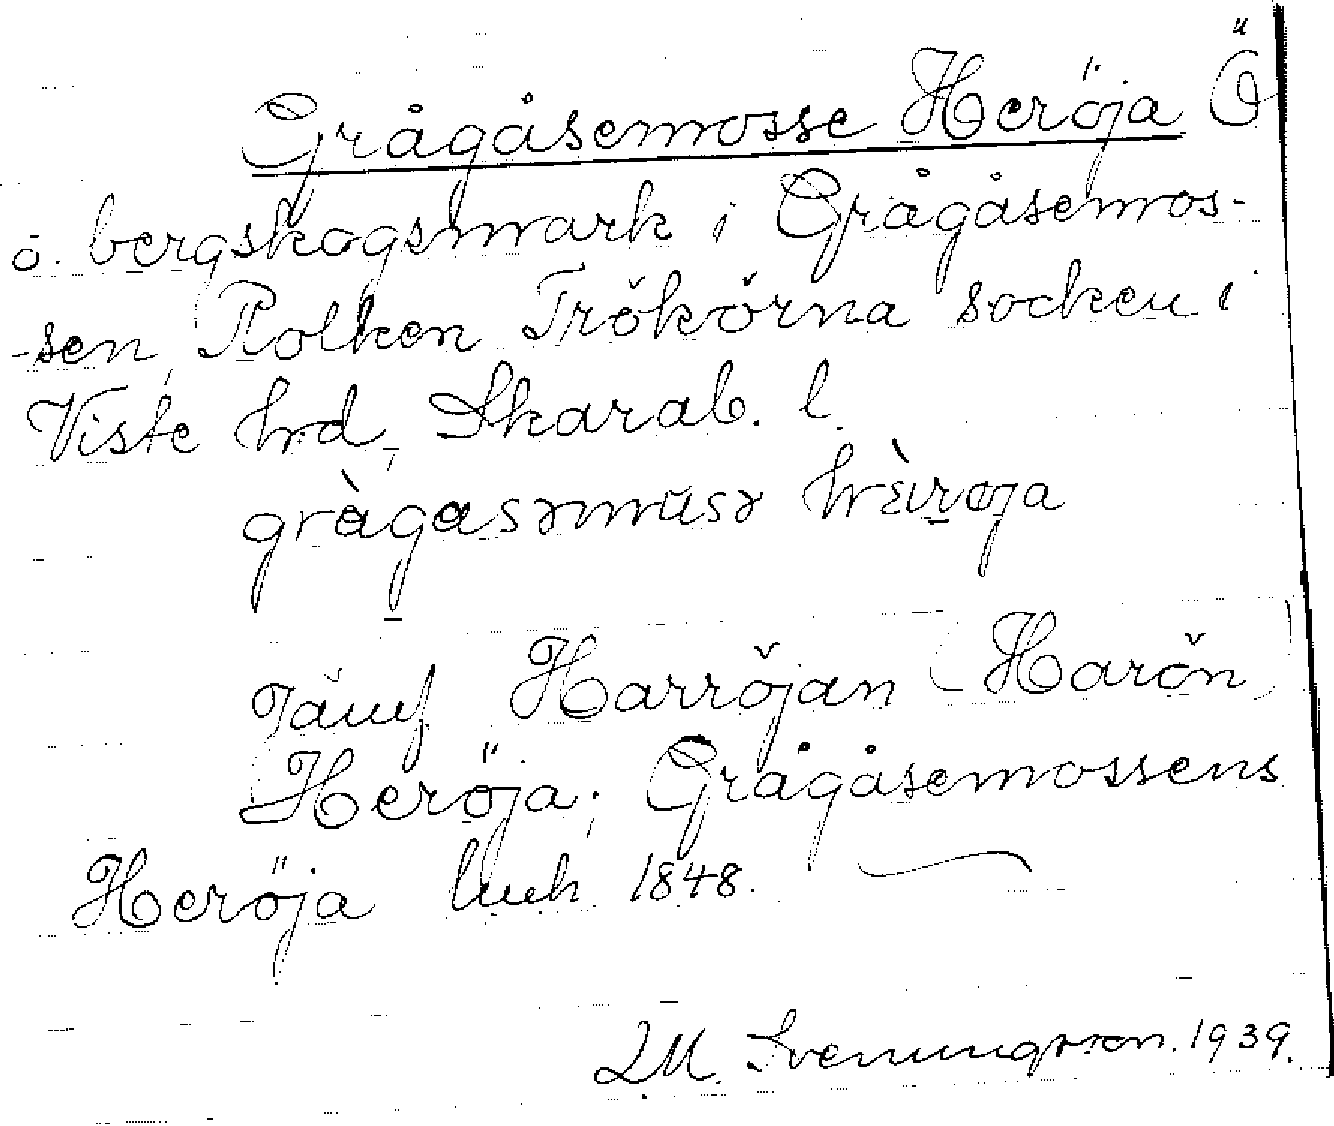 Grågåsemosse Heröja Ö
ö. bergskogsmark i Grågåsemos-
-sen, Rolken Trökörna socken i
Viste hrd, Skarab. l.
gràgasəmusə hæ̀roja
Jämf Harröjan (Harön,
Heröja; Grågåsemossens
Heröja luh 1848.
LM. Svenungsson. 1939.